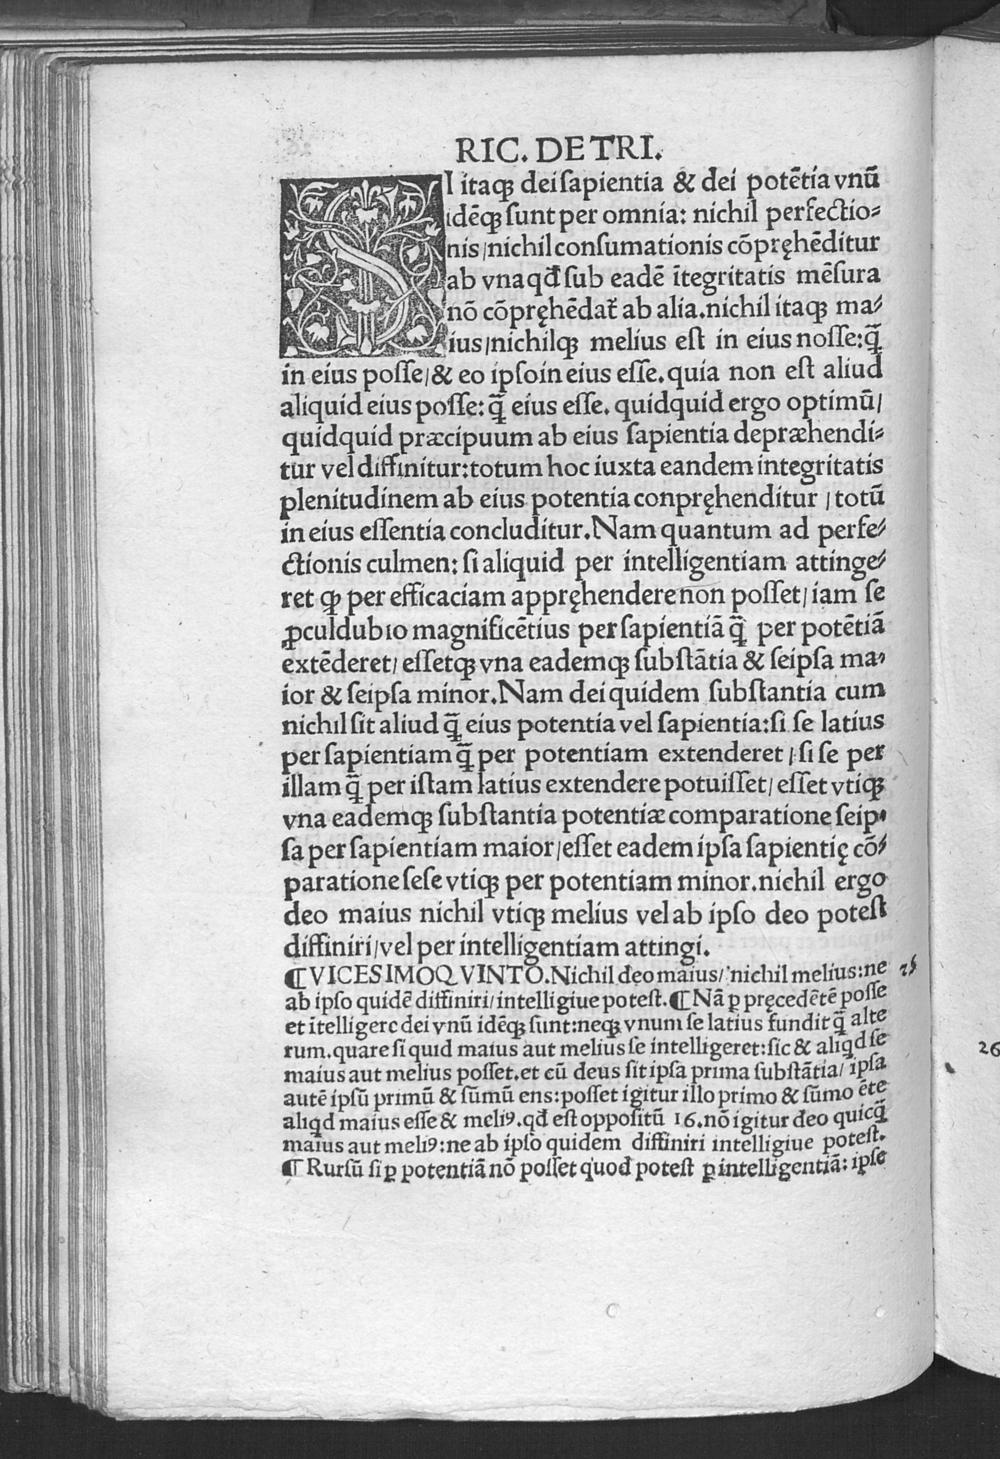 RIC. DE TRI.
SI itaqꝫ dei sapientia & dei potētia vnū
idēqꝫ sunt per omnia: nichil perfectio⸗
nis/nichil consumationis cōpręhēditur
ab vna qđ sub eadē ītegritatis mēsura
nō cōpręhēdat᷑ ab alia. nichil itaqꝫ ma⸗
ius/nichilqꝫ melius est in eius nosse: q̄
in eius posse/& eo ipso in eius esse. quia non est aliud
aliquid eius posse: q̄ eius esse. quidquid ergo optimū/
quidquid præcipuum ab eius sapientia depræhendi⸗
tur vel diffinitur: totum hoc iuxta eandem integritatis
plenitudinem ab eius potentia conpręhenditur / totū
in eius essentia concluditur. Nam quantum ad perfe⸗
ctionis culmen: si aliquid per intelligentiam attinge⸗
ret qꝫ per efficaciam appręhendere non posset/ iam se
ꝓculdubio magnificētius per sapientiā q̄ per potētiā
extēderet/ essetqꝫ vna eademqꝫ substātia & seipsa ma⸗
ior & seipsa minor. Nam dei quidem substantia cum
nichil sit aliud q̄ eius potentia vel sapientia: si se latius
per sapientiam q̄ per potentiam extenderet / si se per
illam q̄ per istam latius extendere potuisset/ esset vtiqꝫ
vna eademqꝫ substantia potentiæ comparatione seip⸗
sa per sapientiam maior/esset eadem ipsa sapientię cō⸗
paratione sese vtiqꝫ per potentiam minor. nichil ergo
deo maius nichil vtiqꝫ melius vel ab ipso deo potest
diffiniri/vel per intelligentiam attingi.
¶ VICESIMOQVINTO. Nichil deo maius/ nichil melius: ne 25
ab ipso quidē diffiniri/intelligiue potest. ¶ Nā ꝑ pręcedētē posse
et ītelligere dei vnū idēqꝫ sunt: neqꝫ vnum se latius fundit q̄ alte
rum. quare si quid maius aut melius se intelligeret: sic & aliqd se
maius aut melius posset. et cū deus sit ipsa prima substātia/ ipsa
autē ipsū primū & sūmū ens: posset igitur illo primo & sūmo ēte
aliqd maius esse & meliꝰ. qđ est oppositū 16. nō igitur deo quicq̄
maius aut meliꝰ: ne ab ipso quidem diffiniri intelligiue potest.
¶ Rursū si ꝑ potentiā nō posset quod potest ꝑ intelligentiā: ipse
26